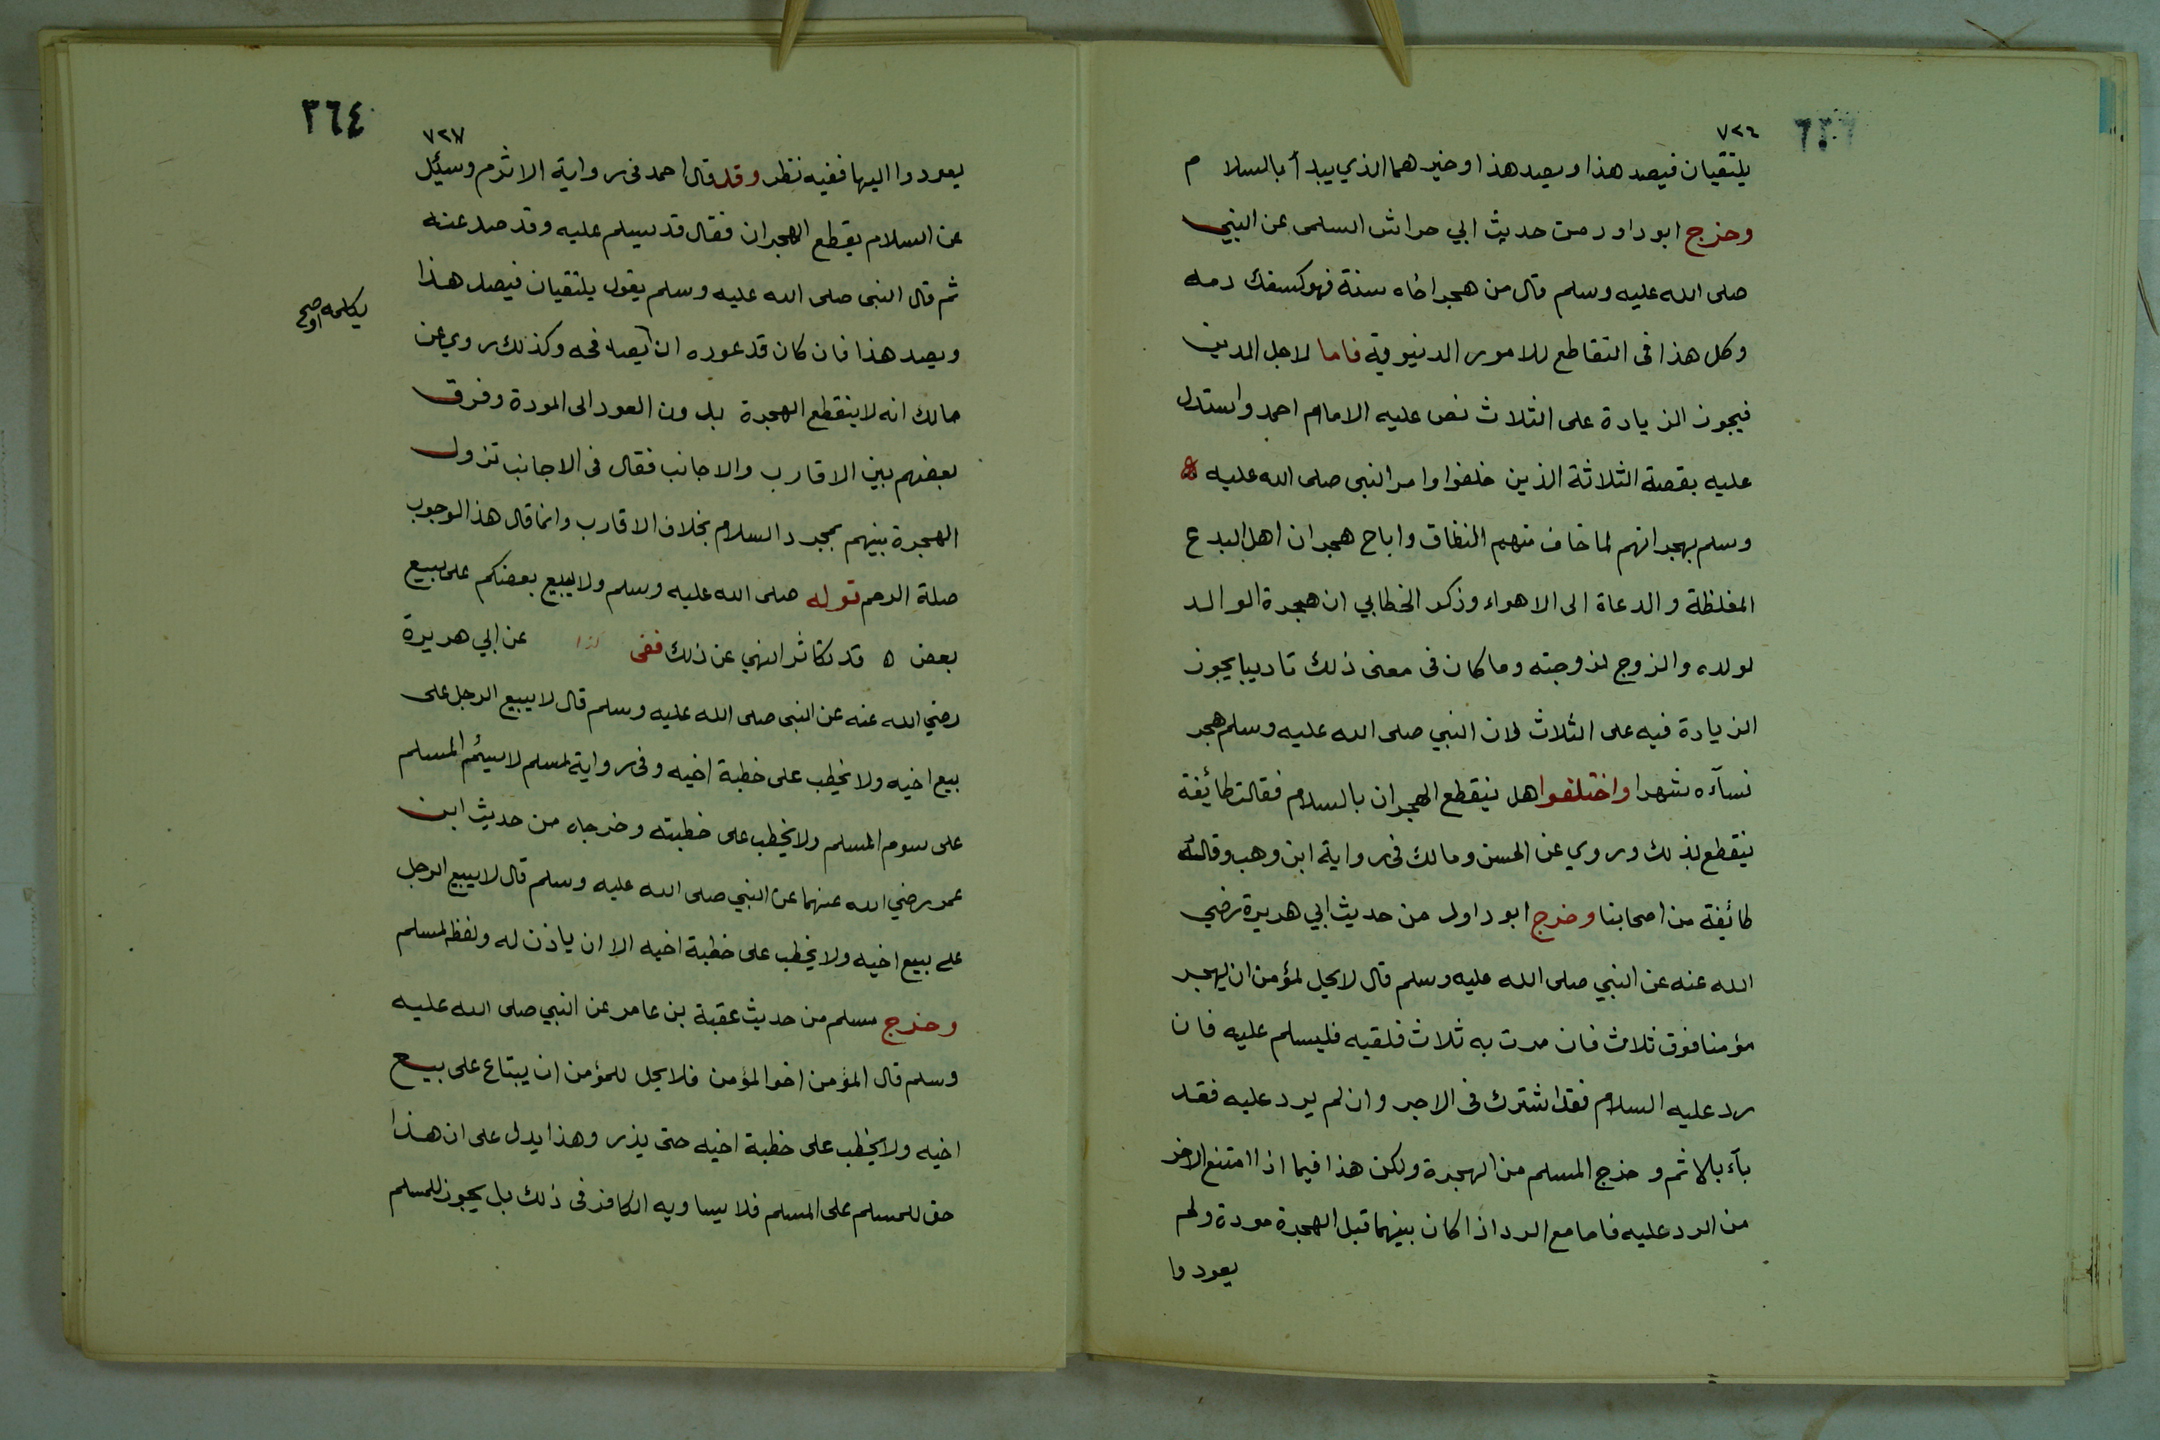 ٧٢٦
يلتقيان فيصد هذا ويصد هذا وخيرهما الذي يبدأ بالسلام
وخرج ابو داود من حديث ابي حراش السلمى عن النبي
صلى الله عليه وسلم قال من هجر اخاه سنة فهو كسفك دمه
وكل هذا فى التقاطع للامور الدنيوية فاما لاجل الدين
فيجوز الزيادة على الثلاث نص عليه الامام احمد واستدل
عليه بقصة الثلاثة الذين خلفوا وامر النبى صلى الله عليه
وسلم بهجرانهم لما خاف منهم النفاق واباح هجران اهل البدع
المغلظة والدعاة الى الاهواء وذكر الخطابي ان هجرة الوالد
لولده والزوج لزوجته وما كان فى معنى ذلك تاديبا يجوز
الزيادة فيه على الثلاث لان النبي صلى الله عليه وسلم هجر
نسآءه شهرا واختلفوا هل ينقطع الهجران بالسلام فقالت طائفة
ينقطع بذلك وروي عن الحسن ومالك فى رواية ابن وهب وقالته
طائفة من اصحابنا وخرج ابو داود من حديث ابي هريرة رضي
الله عنه عن النبي صلى الله عليه وسلم قال لا يحل لمؤمن ان يهجر
مؤمنا فوق ثلاث فان مرت به ثلاث فلقيه فليسلم عليه فان
رد عليه السلام فقد اشترك فى الاجر وان لم يرد عليه فقد
بآء بالاثم وخرج المسلم من الهجرة ولكن هذا فيما اذا امتنع الاخر
من الرد عليه فاما مع الرد اذا كان بينهما قبل الهجرة مودة ولم
يعودوا
٣٦٤
٧٢٧
يعودوا اليها ففيه نظر وقد قال احمد فى رواية الاثرم وسئل
عن السلام يقطع الهجران فقال قد يسلم عليه وقد صد عنه
ثم قال النبى صلى الله عليه وسلم يقول يلتقيان فيصد هذا
ويصد هذا فان كان قد عوده ان يصافحه وكذلك روي عن
يكلمه او صح
مالك انه لا ينقطع الهجرة بدون العود الى المودة وفرق
بعضهم بين الاقارب والاجانب فقال فى الاجانب تزول
الهجرة بينهم بمجرد السلام بخلاف الاقارب وانما قال هذا لوجوب
صلة الرحم قوله صلى الله عليه وسلم ولا يبيع بعضكم على بيع
بعض ه قد تكاثر النهي عن ذلك ففى كذا عن ابي هريرة
رضي الله عنه عن النبى صلى الله عليه وسلم قال لا يبيع الرجل على
بيع اخيه ولا يخطب على خطبة اخيه وفى رواية لمسلم لا يسئم المسلم
على سوم المسلم ولا يخطب على خطبته وخرجاه من حديث ابن
عمر رضي الله عنهما عن النبي صلى الله عليه وسلم قال لا يبيع الرجل
على بيع اخيه ولا يخطب على خطبة اخيه الا ان ياذن له ولفظه لمسلم
وخرج مسلم من حديث عقبة بن عامر عن النبي صلى الله عليه
وسلم قال المؤمن اخو المؤمن فلا يحل للمؤمن ان يبتاع على بيع
اخيه ولا يخطب على خطبة اخيه حتى يذر وهذا يدل على ان هذا
حق للمسلم على المسلم فلا يساويه الكافر فى ذلك بل يجوز للمسلم